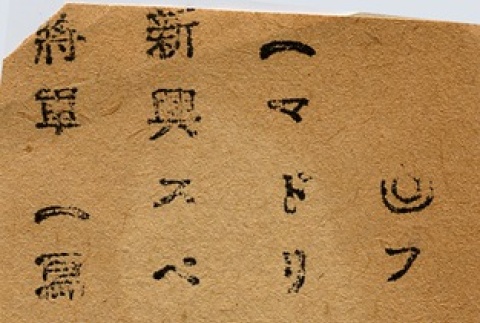 ◎フ
(マドリ
新興スペ
將軍(寫